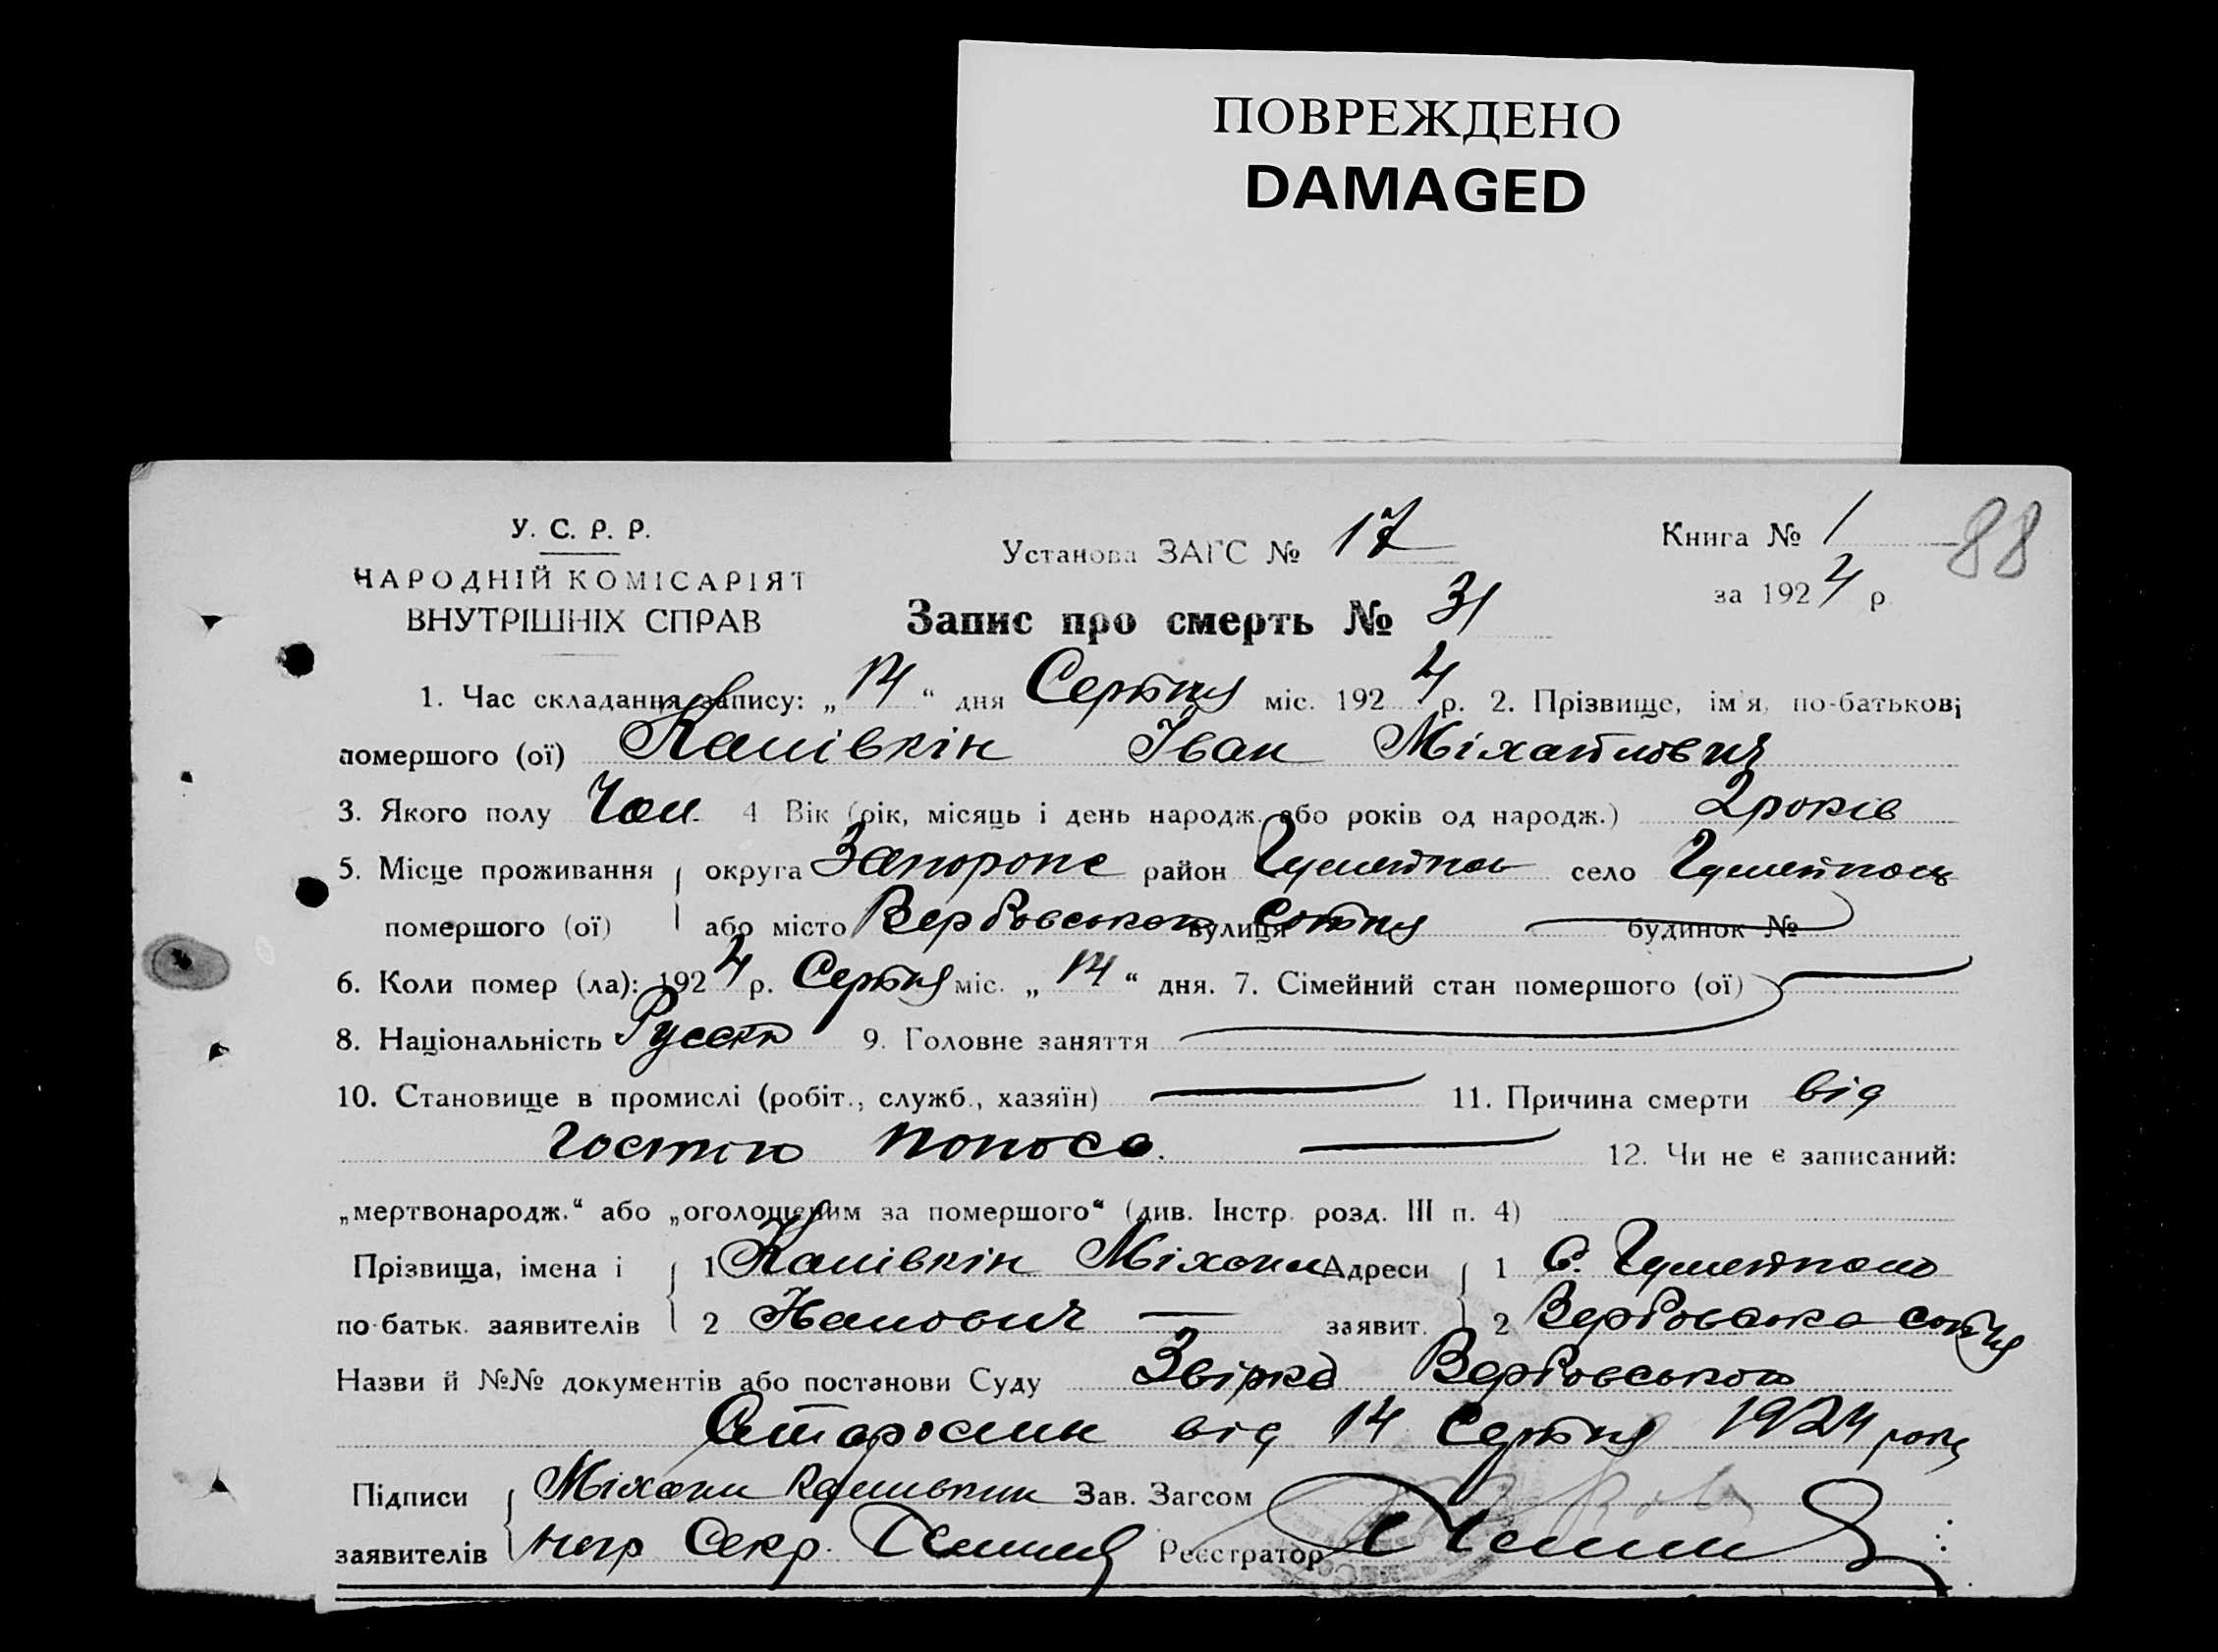 ПОВРЕЖДЕНО
DAMAGED
У. С. Р. Р.
НАРОДНІЙ КОМІСАРІЯТ
ВНУТРІШНІХ СПРАВ
Установа ЗАГС № 17
Книга № 1
88
за 1924 р.
Запис про смерть № 31
1. Час складання запису: „14“ дня Серпня міс. 1924 р. 2. Прізвище, ім'я, по-батькові
помершого (ої) Калівкін Іван Міхайлович
3. Якого полу Чол. 4 Вік (рік, місяць і день народж. або років од народж.) 2 років
5. Місце проживання округа Запорож район Гуляйпол село Гуляйполь
помершого (ої) або місто Вербовської вулиця Сотня будинок №
6. Коли помер (ла): 1924 р. Серпня міс. „14“ дня. 7. Сімейний стан помершого (ої)
8. Національність 9. Головне заняття
10. Становище в промислі (робіт., служб., хазяїн) 11. Причина смерти від
поноса.
12. Чи не є записаний:
„мертвонародж.“ або „оголошеним за помершого“ (див. Інстр. розд. III п. 4)
Прізвища, імена і 1 Калівкін Міхайл Адреси 1 С. Гуляйполе
по-батьк. заявителів 2 Іванович заявит. 2 Вербовська сотня
Назви й №№ документів або постанови Суду Вербовського
від 14 Серпня 1924 року
Підписи Міхаил Каливкин Зав. Загсом
заявителів Секр. Реєстратор